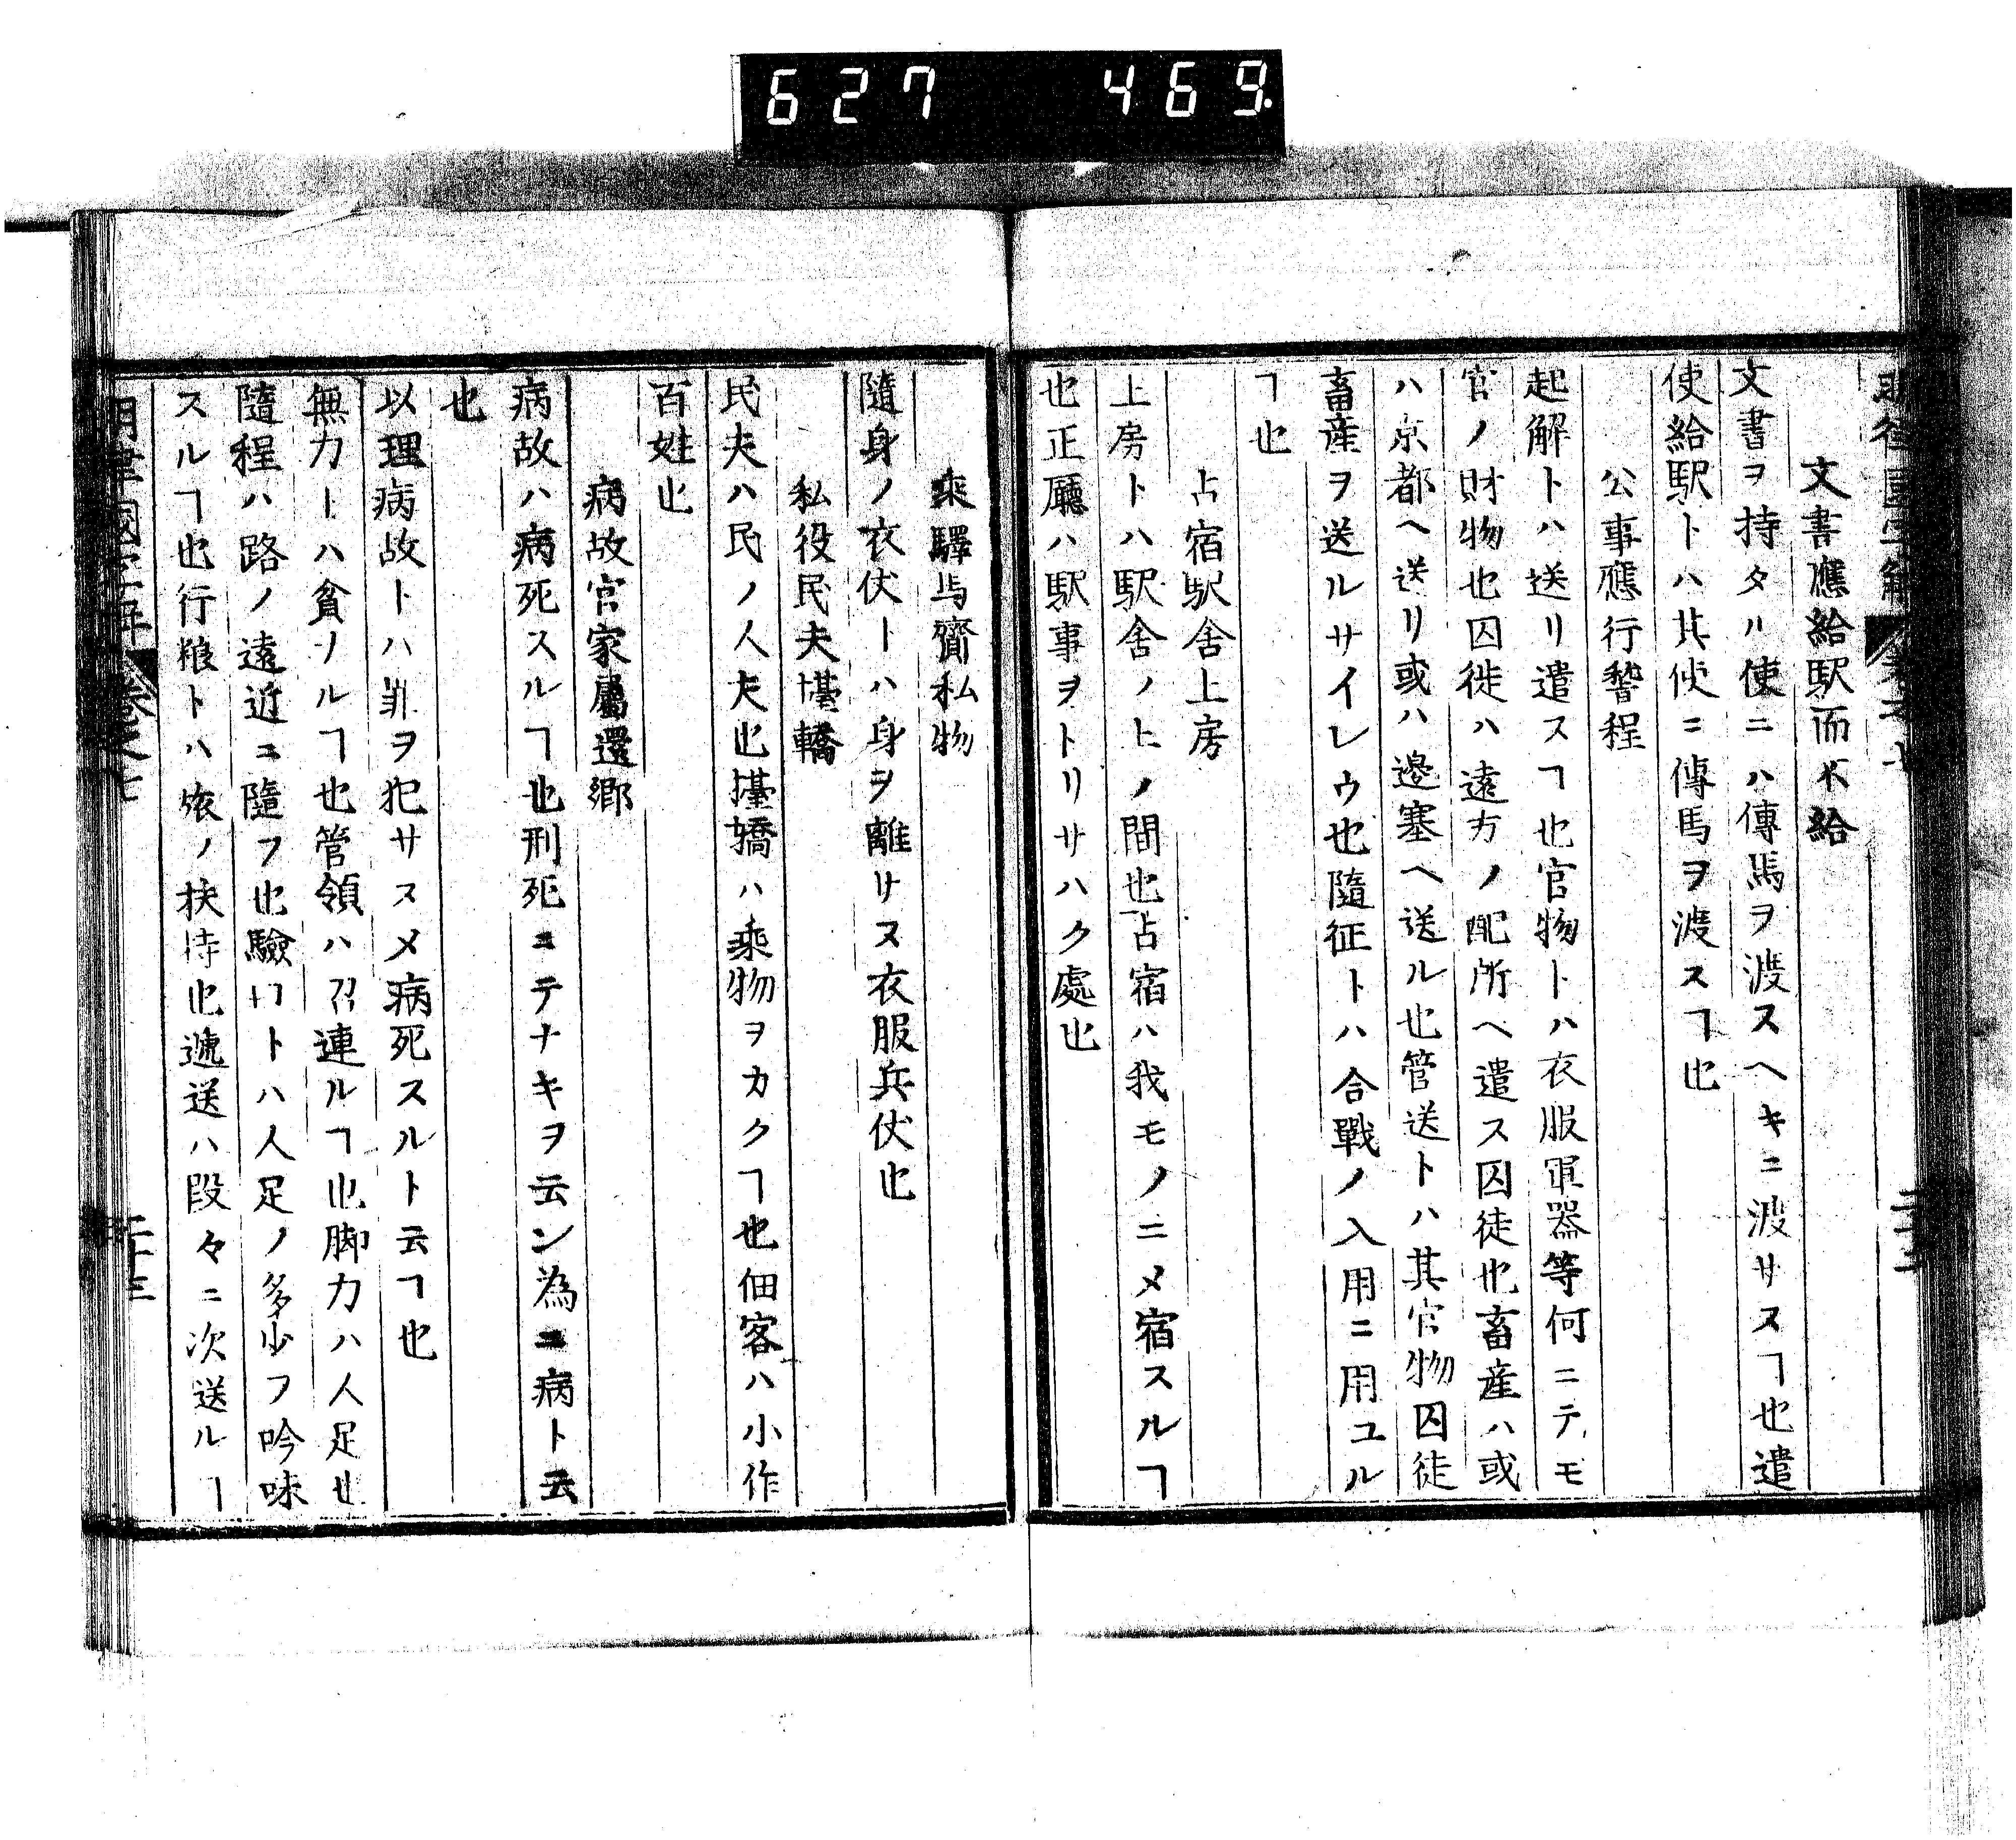 627 469
文書應給駅而不給
文書ヲ持タル使ニハ傳馬ヲ渡スヘキニ渡サスヿ也遣
使給駅トハ其使ニ傳馬ヲ渡スヿ也
公事應行稽程
起解トハ送リ遣スヿ也官物トハ衣服軍器等何ニテモ
官ノ財物也囚徒ハ遠方ノ配所ヘ遣ス囚徒也畜産ハ或
ハ京都ヘ送リ或ハ邊塞ヘ送ル也管送トハ其官物囚徒
畜産ヲ送ルサイレウ也隨征トハ合戰ノ入用ニ用ユル
ヿ也
占宿駅舎上房
上房トハ駅舎ノヒノ間也占宿ハ我モノニメ宿スルヿ
也正廳ハ駅事ヲトリサハク處也
乘驛馬齎私物
隨身ノ衣伏トハ身ヲ離サス衣服兵伏也
私役民夫擡轎
民夫ハ民ノ人夫也擡轎ハ乘物ヲカクヿ也佃客ハ小作
百姓也
病故官家屬還鄉
病故ハ病死スルヿ也刑死ニテナキヲ云ン為ニ病ト云
也
以理病故トハ罪ヲ犯サスメ病死スルト云ヿ也
無力トハ貧ナルヿ也管領ハ召連ルヿ也脚力ハ人足也
隨程ハ路ノ遠近ニ隨フ也驗口トハ人足ノ多少ヲ吟味
スルヿ也行粮トハ旅ノ扶持也遞送ハ段々ニ次送ルヿ
明律國字解 卷之七 二十三